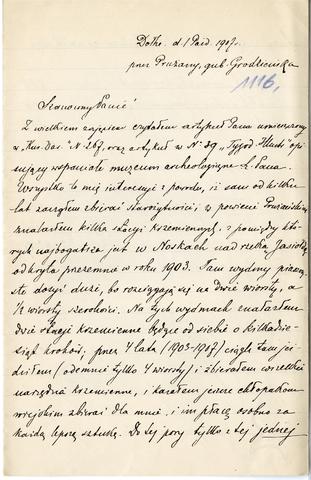 Dołhe. d. 1 Paźd. 1907 r.
przez Prużany, gub. Grodzieńska
1116,
Szanowny Panie!
Z wielkiem zajęciem czytałem artykuł Pana umieszczony
w „Kur. War." N 267, oraz artykuł w N 39 „Tygod. Illustr" opi
sujący wspaniałe muzeum archeologiczne Pana.
Wszystko to mię interesuje z powodu, iż sam od kilku
lat zacząłem zbierać starożytności; w powiecie Prużańskim
znalazłem kilka stacyi krzemiennych, z pomiędzy któ
rych najbogatsza jest w Noskach nad rzeką Jasiołdą
odkryta przezemnie w roku 1903. Tam wydmy piaszczy
ste dosyć duże, bo rozciągają się na dwie wiorsty, a
1/2 wiorsty szerokości. Na tych wydmach znalazłem
dwie stacye krzemienne będące od siebie o kilkadzie-
siąt kroków; przez 4 lata (1903-1907) ciągle tam jeź-
dziłem (odemnie tylko 4 wiorsty) i zbierałem wszelkie
narzędzia krzemienne, i kazałem jeszcze chłopakom
wiejskim zbierać dla mnie, i im płacę osobno za
każdą lepszą sztukę. Do tej pory tylko z tej jednej